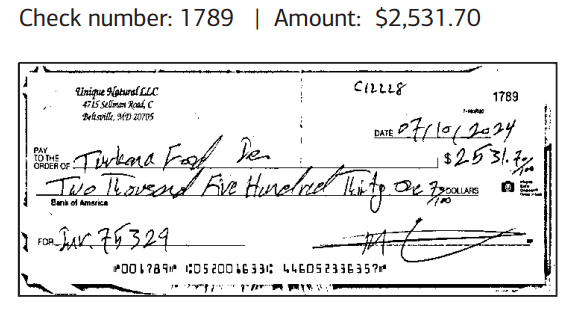 Check number: 1789 | Amount: $2,531.70
Unique Natural LLC
4715 Sellman Road, C
Beltsville, MD 20705
C12228
1789
DATE 07/10/2024
PAY
TO THE
ORDER OF Turkana Food
$2531.70/100
Two Thousand Five Hundred Thirty One 70/100 DOLLARS
Bank of America
FOR Inv. 75329
⑈001789⑈ ⑆052001633⑆ 446052336357⑈